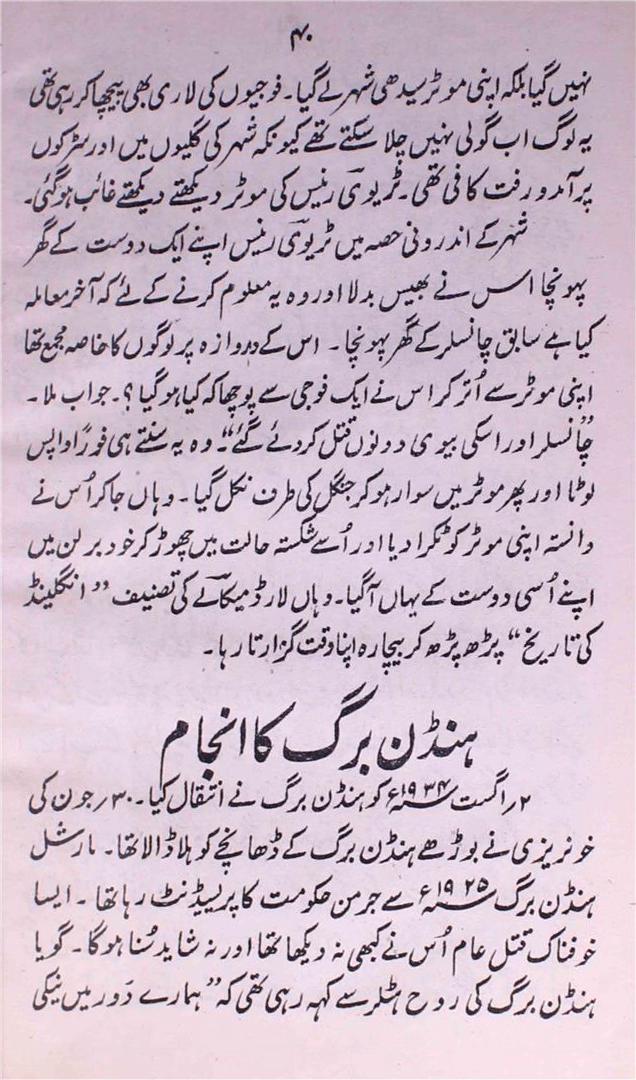 ۴۰
نہیں گیا بلکہ اپنی موٹر سیدھی شہر لے گیا۔ فوجیوں کی لاری بھی پیچھا کر رہی تھی
یہ لوگ اب گولی نہیں چلا سکتے تھے کیونکہ شہر کی گلیوں میں اور سڑکوں
پر آمد و رفت کافی تھی۔ ٹریوی رنیس کی موٹر دیکھتے دیکھتے غائب ہو گئی۔
شہر کے اندرونی حصہ میں ٹریوی رنیس اپنے ایک دوست کے گھر
پہونچا اس نے بھیس بدلا اور وہ یہ معلوم کرنے کے لئے کہ آخر معاملہ
کیا ہے سابق چانسلر کے گھر پہونچا۔ اس کے دروازہ پر لوگوں کا خاصہ مجمع تھا
اپنی موٹر سے اُتر کر اس نے ایک فوجی سے پوچھا کہ کیا ہو گیا؟۔ جواب ملا۔
"چانسلر اور اسکی بیوی دونوں قتل کر دئے گئے" وہ یہ سنتے ہی فوراً واپس
لوٹا اور پھر موٹر میں سوار ہو کر جنگل کی طرف نکل گیا۔ وہاں جا کر اُس نے
دانستہ اپنی موٹر کو ٹکرا دیا اور اُسے شکستہ حالت میں چھوڑ کر خود برلن میں
اپنے اُسی دوست کے یہاں آ گیا۔ وہاں لارڈ میکالے کی تصنیف "انگلینڈ
کی تاریخ" پڑھ پڑھ کر بیچارہ اپنا وقت گزارتا رہا۔
ہنڈن برگ کا انجام
۲؍ اگست ۱۹۳۴ء کو ہنڈن برگ نے انتقال کیا۔ ۳۰؍ جون کی
خونریزی نے بوڑھے ہنڈن برگ کے ڈھانچے کو ہلا ڈالا تھا۔ مارشل
ہنڈن برگ ۱۹۲۵ء سے جرمن حکومت کا پریسیڈنٹ رہا تھا۔ ایسا
خوفناک قتل عام اُس نے کبھی نہ دیکھا تھا اور نہ شاید سُنا ہوگا۔ گویا
ہنڈن برگ کی روح ہٹلر سے کہہ رہی تھی کہ "ہمارے دَور میں نیکی